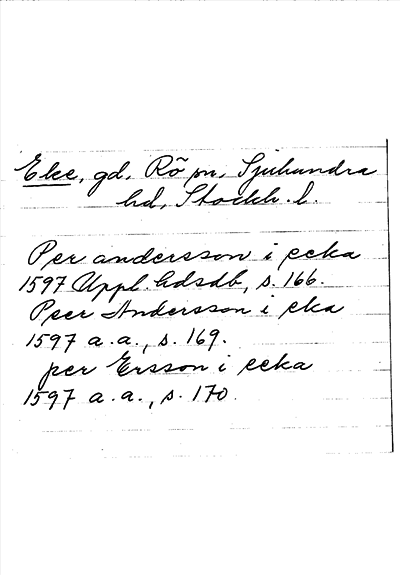 Eke, gd, Rö sn, Sjuhundra
hd, Stockh. l.
Per andersson i ecka
1597 Uppl. hdsdb, s. 166.
Peer Andersson i eka
1597 a.a., s. 169.
per Ersson i ecka
1597 a.a., s. 170.